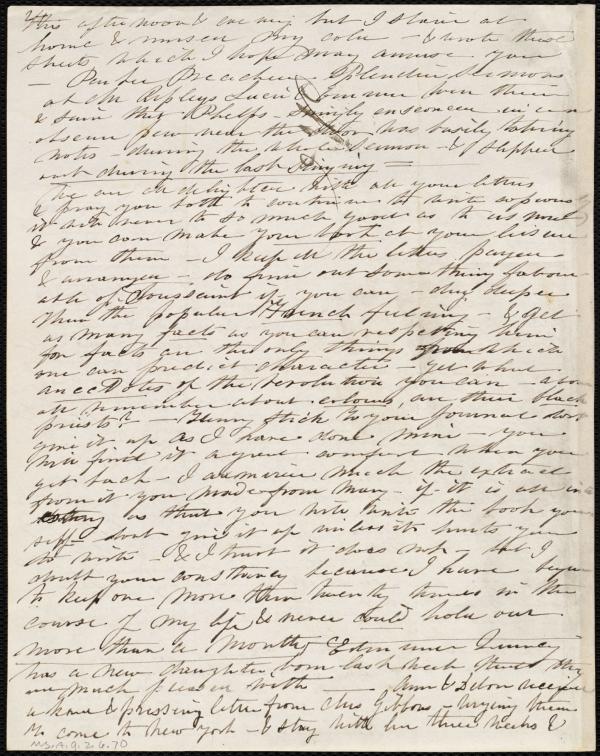 this afternoon & evening but I staid at
home & nursed my cold - & wrote these
sheets which I hope may amuse you
- Parker Preached splendid sermons
at Mr Ripleys Lucia & Emma were there
& saw that Phelps - ensconced in an
obscure pew near the door was busily taking
notes - during the whole Sermon - & slipped
out during the last singing =
We are all delighted with all your letters
& pray you both to continue to write
it never to so much good as to us now
& you can make your book at your leisure
from them - I keep all the letters paged
& arranged - do find out something favour-
able of Toussaint if you can - dig deeper
than the popular French feeling - & get
as many facts as you can respecting him
for facts are the only things from which
one can predict character - get what
anecdotes of the revolution you can - above
all remember about colour, are their black
priests? - Henry stick to your journal dont
give it up as I have done mine - you
will find it a great comfort when you
get back - I admired much the extract
from it you made from Mary - if it is all in
as that you will write the book your
self - dont give it up unless it hurts you
to write - & I trust it does not - but I
doubt your constancy because I have begun
to keep one more than twenty times in the
course of my life & never could hold out
more than a month, Edmund Quincy
has a new daughter born last week they
are much pleased with - Ann & Debora received
a kind & pressing letter from Mrs Gibbons - urging them
to come to New York - & stay with her three weeks &
Ms.A.9.2.6.70